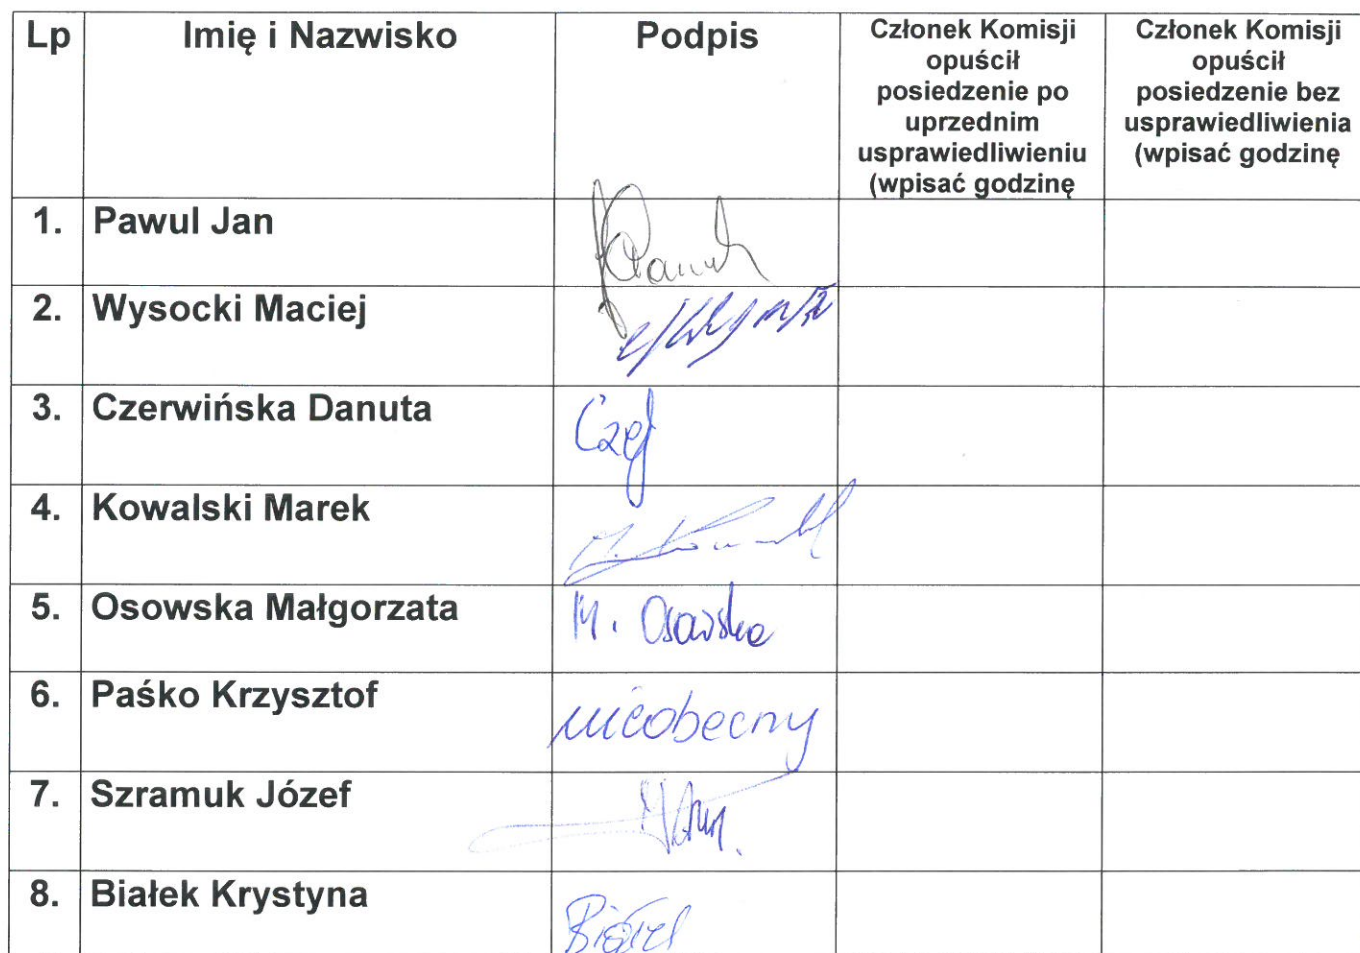 Lp Imię i Nazwisko Podpis
Członek Komisji
opuścił
posiedzenie po
uprzednim
usprawiedliwieniu
(wpisać godzinę
Członek Komisji
opuścił
posiedzenie bez
usprawiedliwienia
(wpisać godzinę
1. Pawul Jan
2. Wysocki Maciej
3. Czerwińska Danuta
4. Kowalski Marek
5. Osowska Małgorzata M. Osowska
6. Paśko Krzysztof nieobecny
7. Szramuk Józef
8. Białek Krystyna Białek